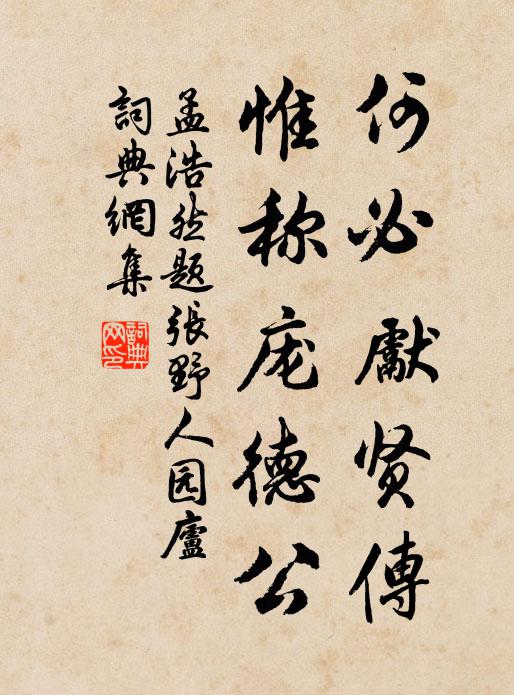 何必獻贤傳
惟称庞德公
孟浩然题張野人园廬
詞典網集
詞典
网印